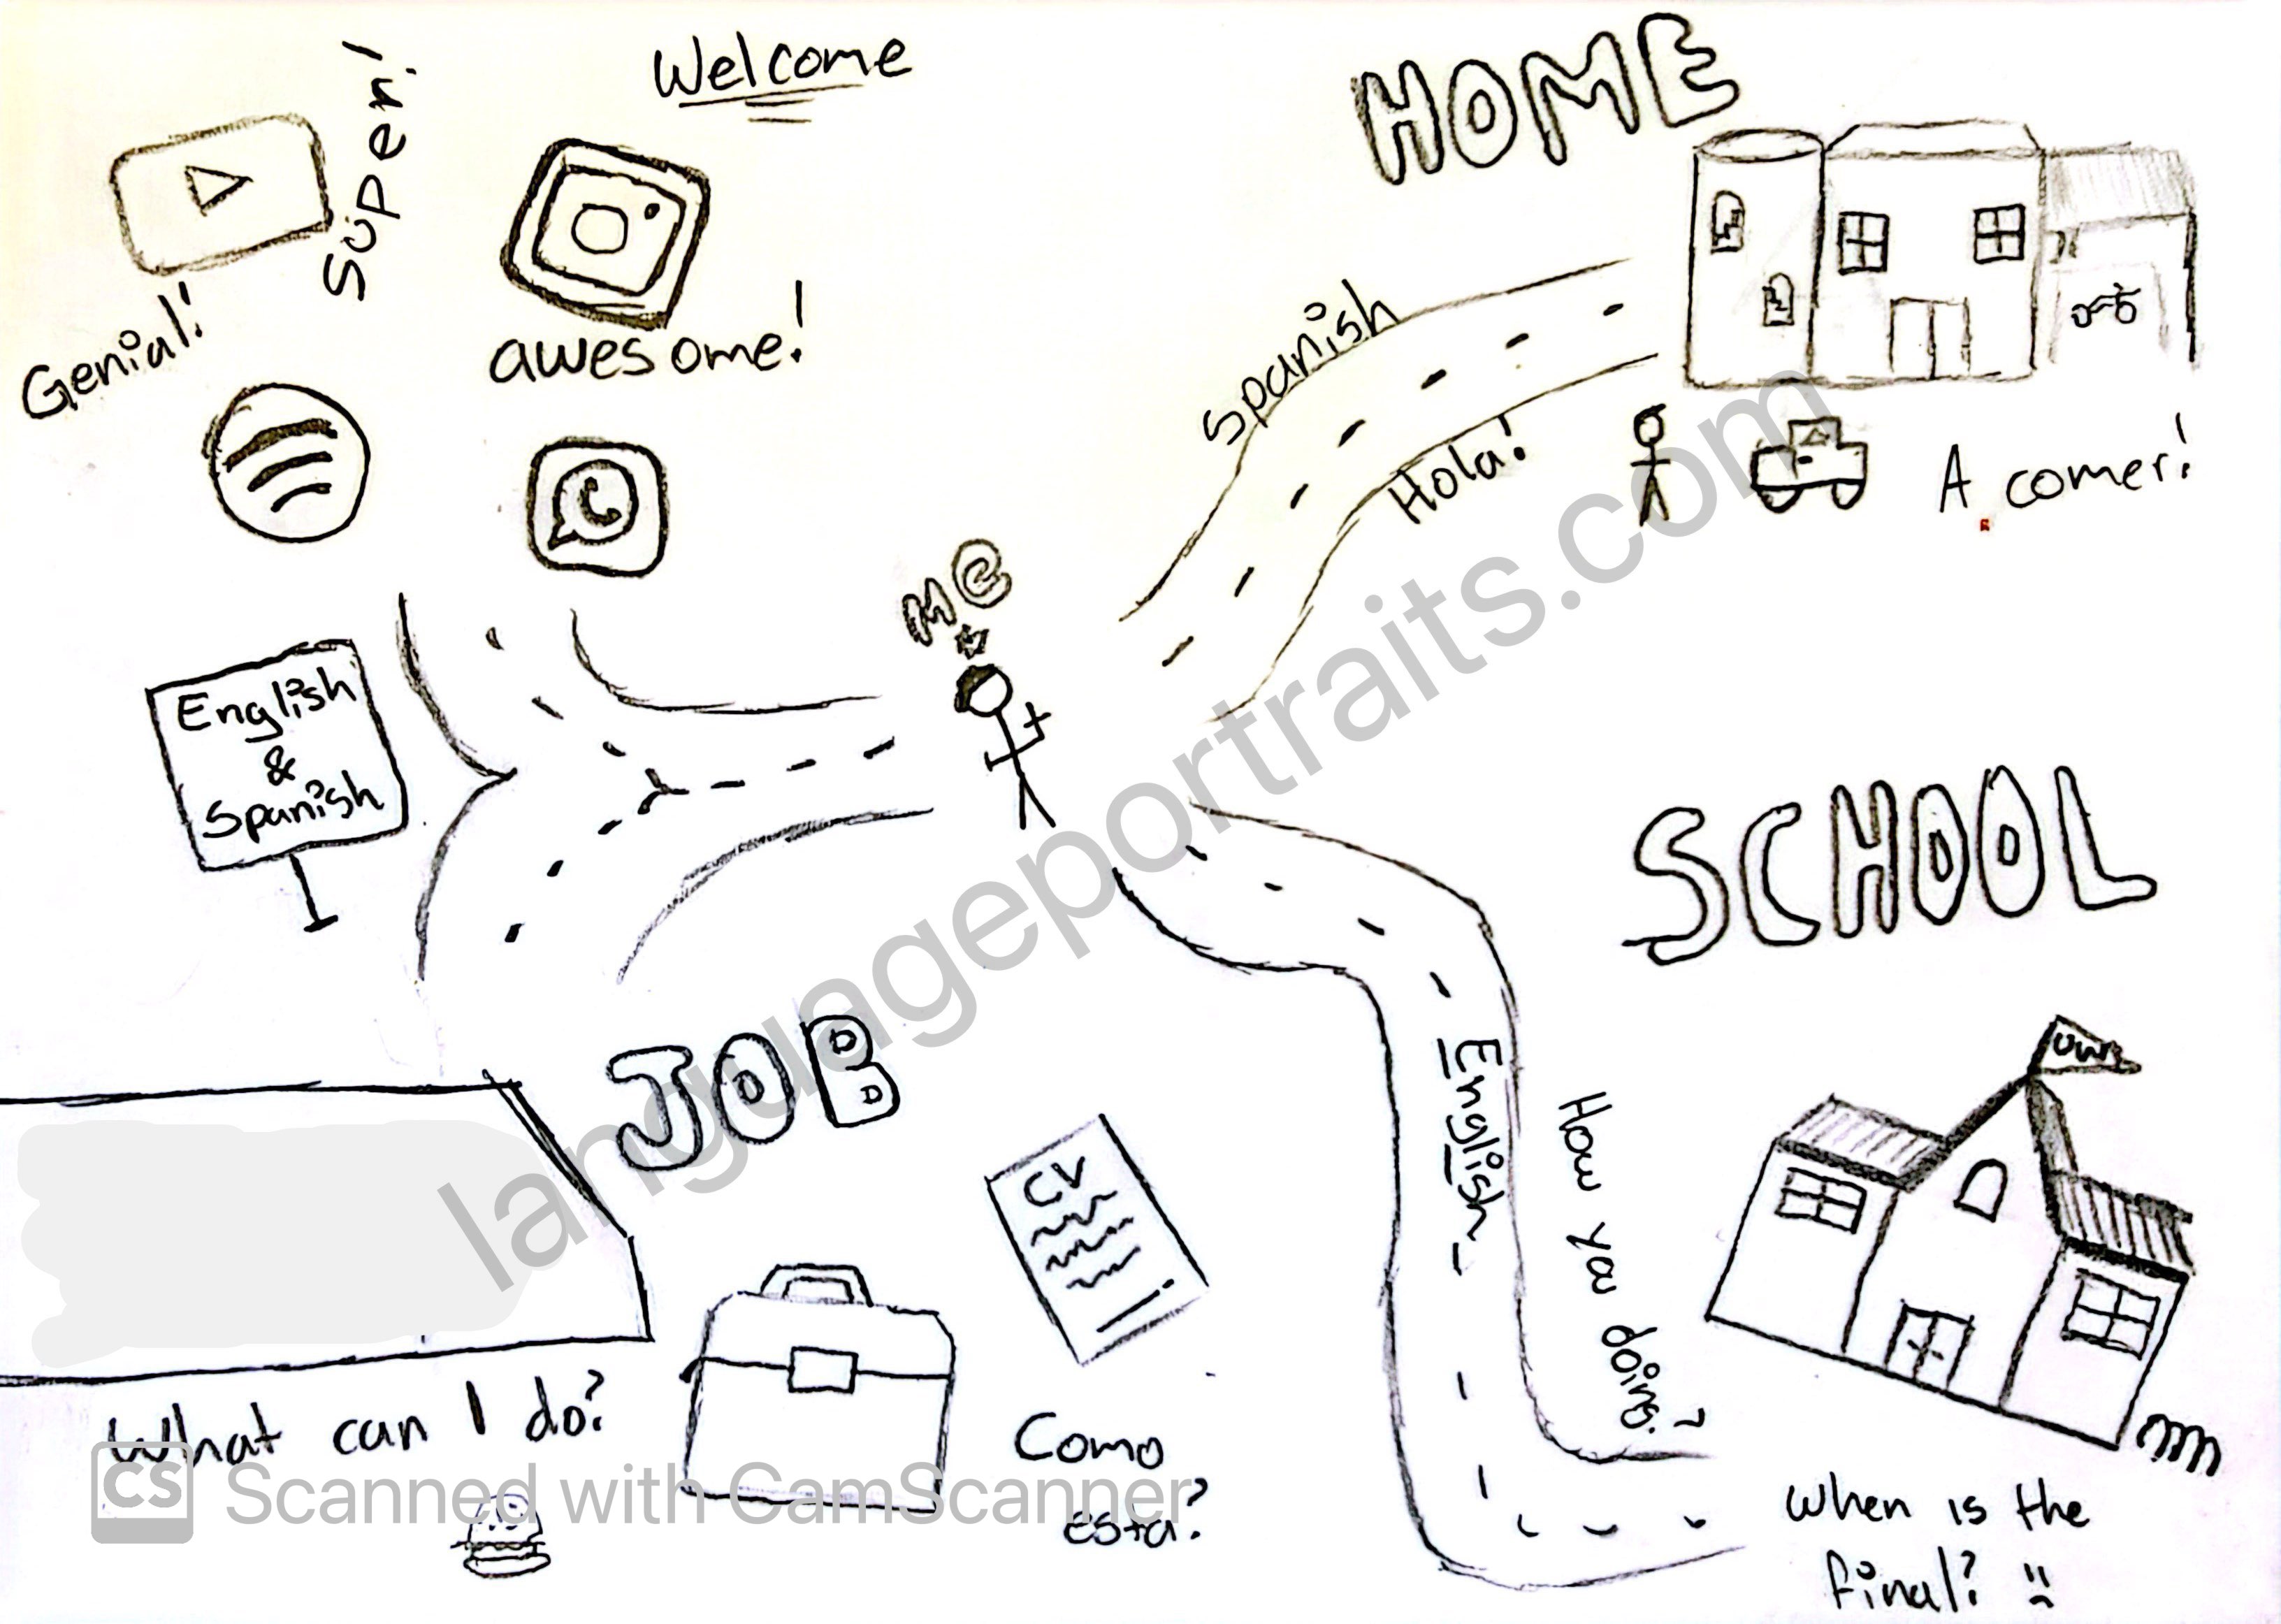 Welcome
HOME
Súper!
Genial!
awesome!
Spanish
Hola!
A comer!
Me
English
&
Spanish
SCHOOL
JOB
CV
English
How you doing?
What can I do?
Como
esta?
When is the
final?
languageportraits.com
CS Scanned with CamScanner